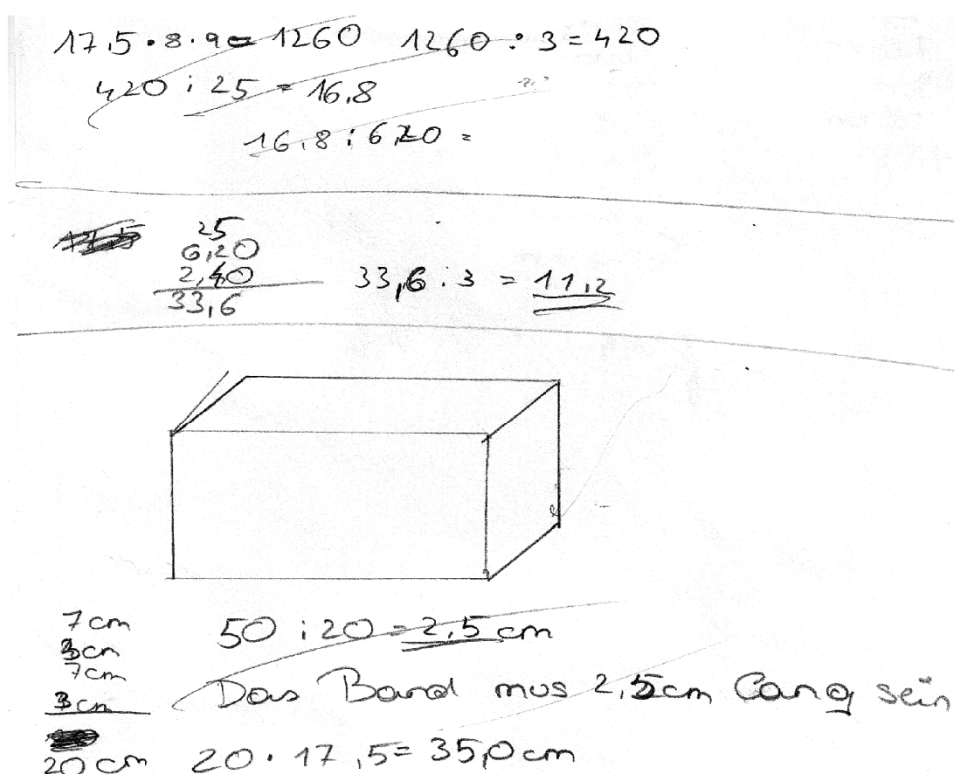 17,5 · 8 · 9 = 1260 1260 : 3 = 420
420 : 25 = 16,8
16,8 : 6,20 =
25
6,20
2,40
33,6
33,6 : 3 = 11,2
7 cm
3 cm
7 cm
3 cm
20 cm
50 : 20 = 2,5 cm
Das Band mus 2,5cm lang sein
20 · 17,5 = 35,0 cm